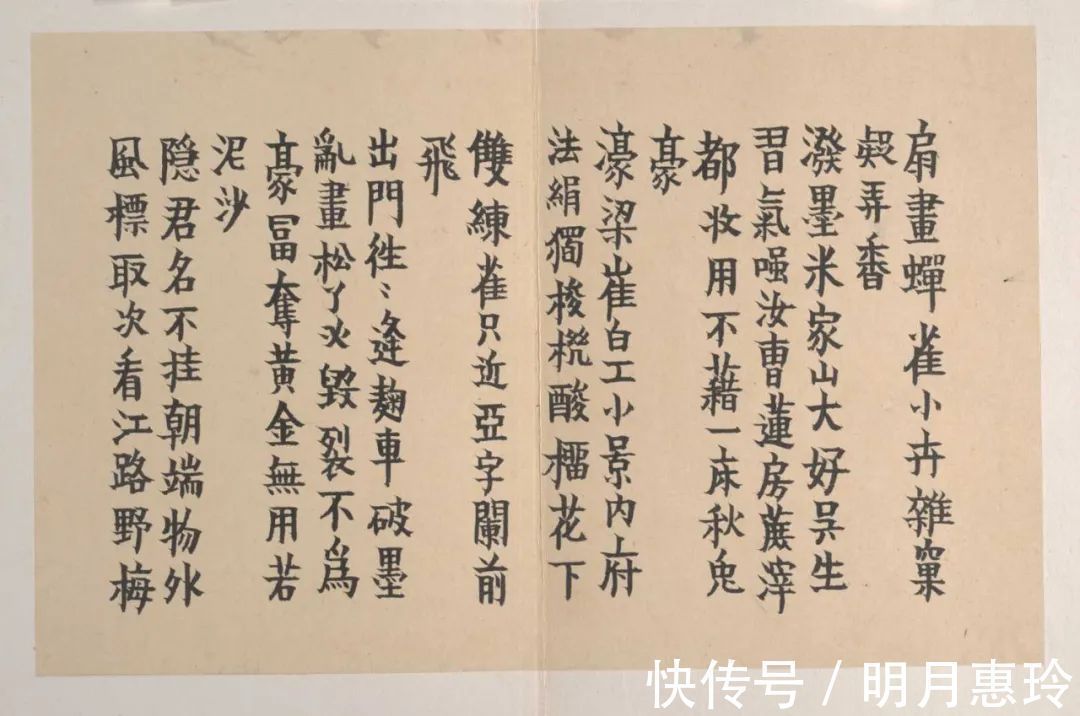 扇畫蟬雀小卉雜窠
弄香
潑墨米家山大好吴生
習氣汝曹蓮房蔗滓
都妝用不藉一床秋兔
豪
濠梁崔白工小景内府
法絹獨梭酸榴花下
雙練雀只近亞字闌前
飛
出門往〻逢麴車破墨
亂畫松了火毀裂不爲
豪富奪黄金無用若
泥沙
隐君名不挂朝端物外
風標取次看江路野梅
快传号 / 明月惠玲